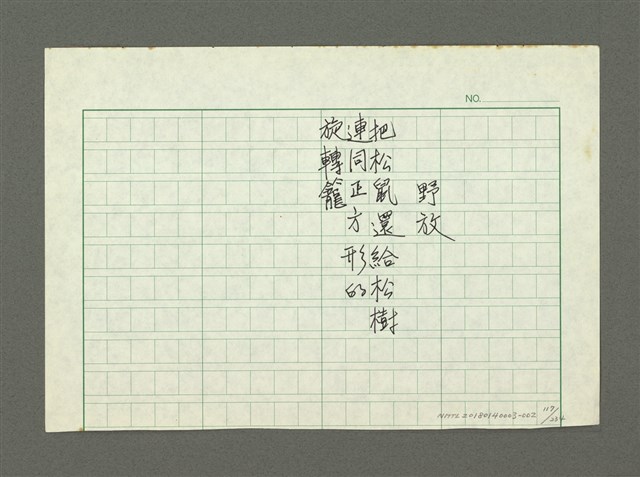 NO.
野放
把松鼠還給松樹
連同正方形的
旋轉籠
NMTL20180140003-002
117/234